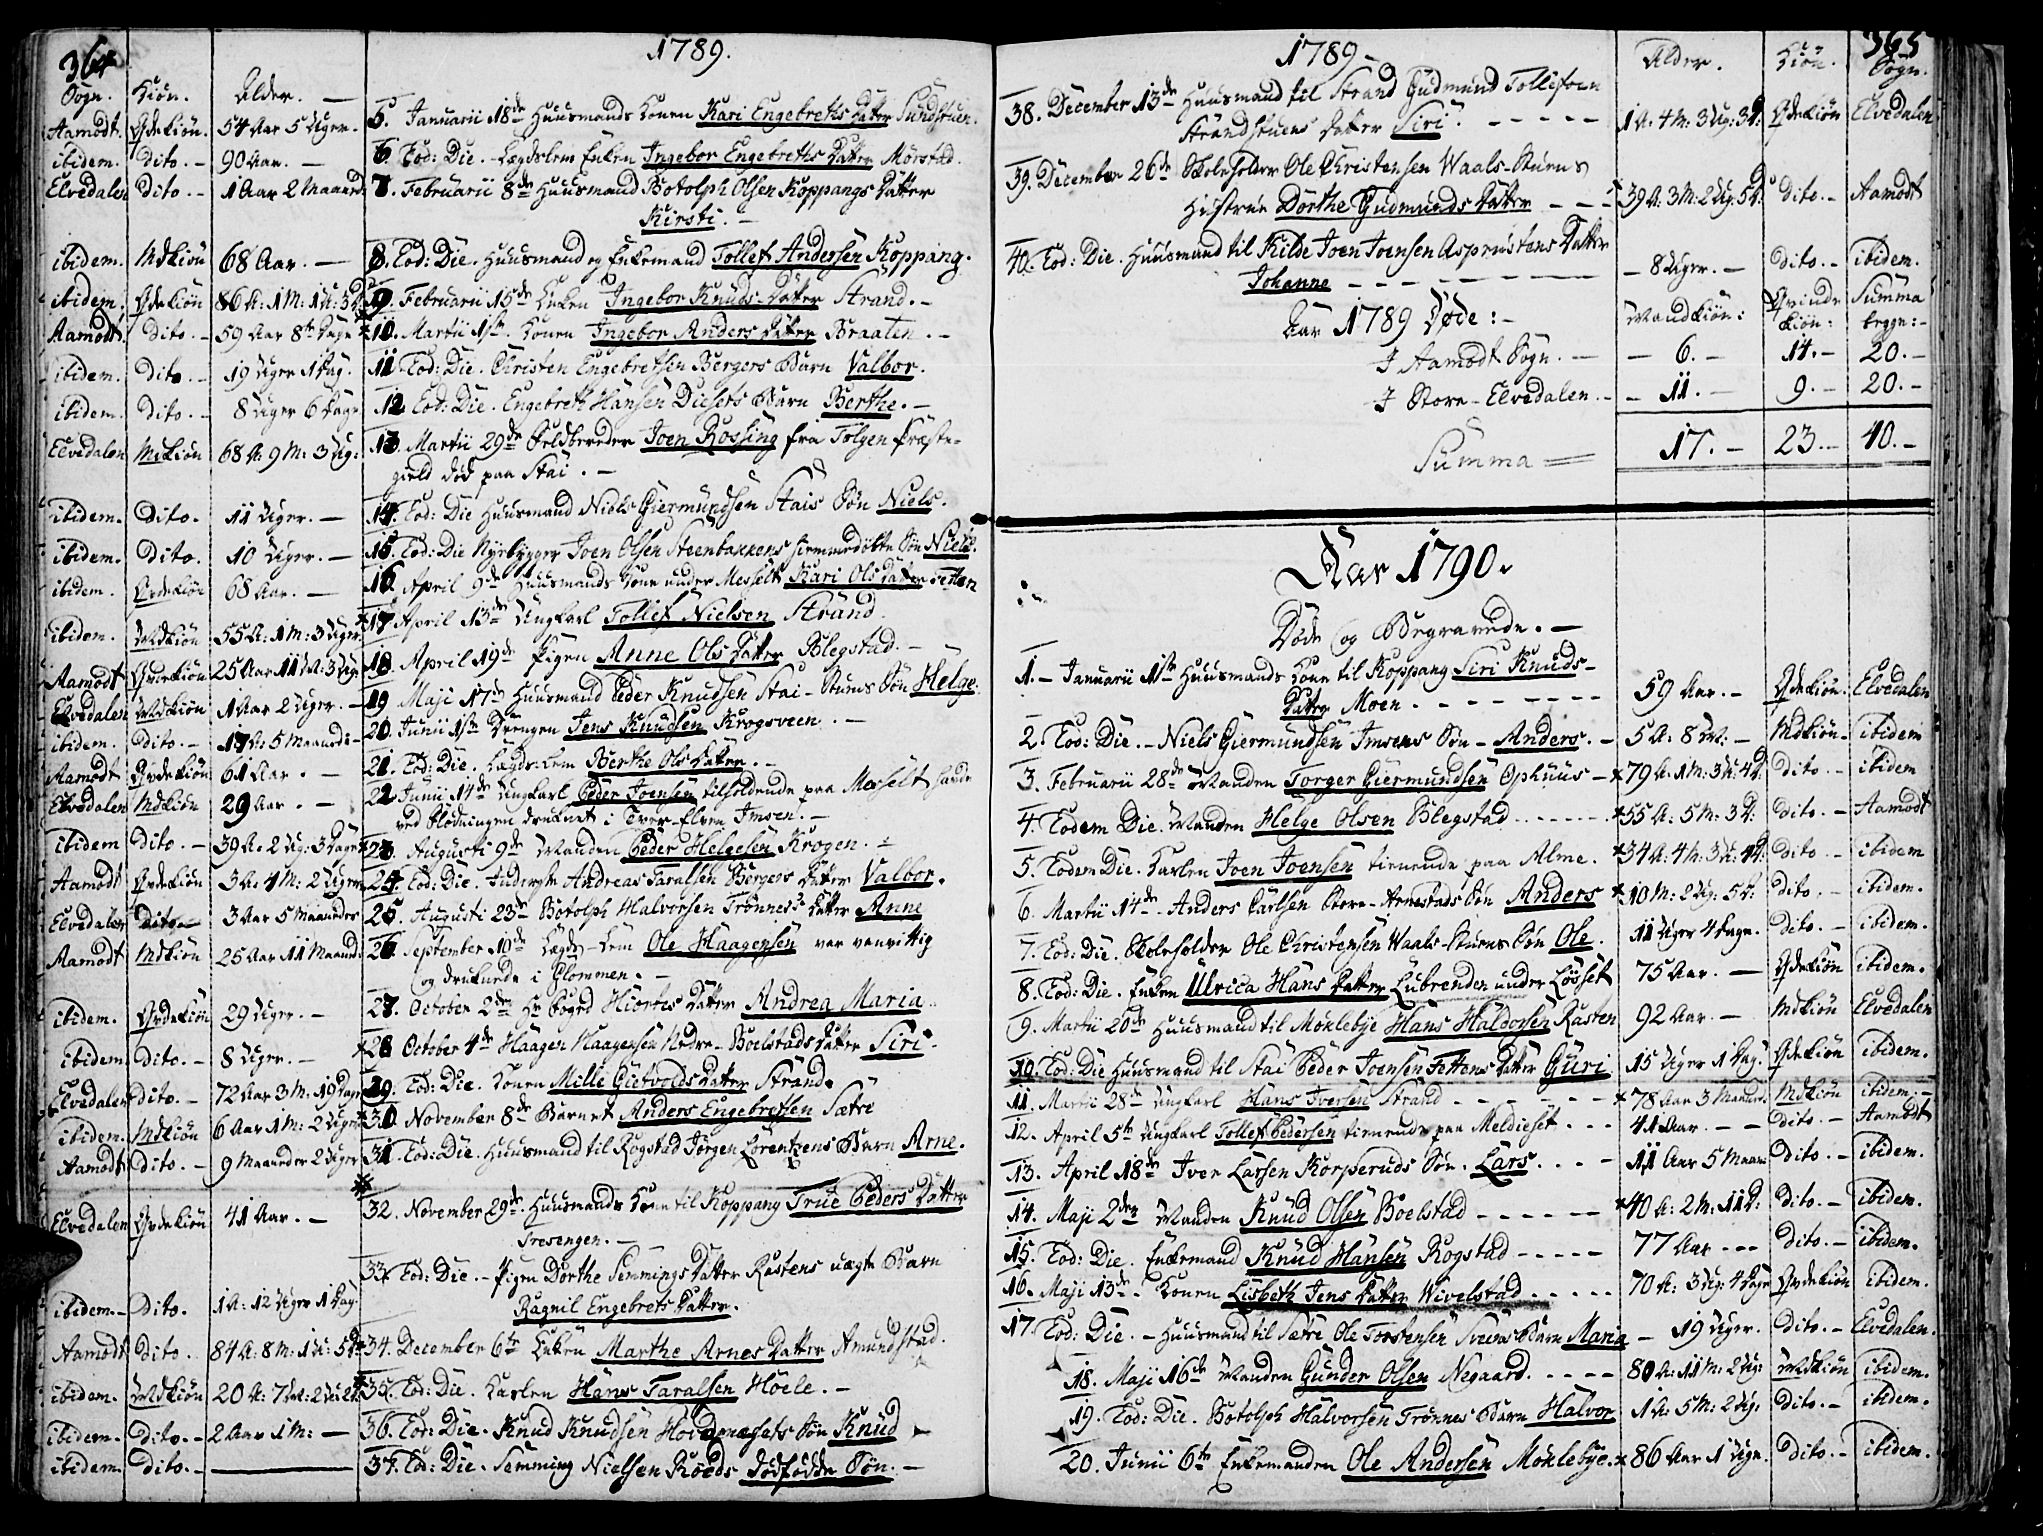 364
1789.
Sogn. Kiön. Alder. —
Aamodt. Qvdekiön. 54 Aar 5 Uger. 5. Januarii 18de Huusmands Konen Kari Engebreths Datter Sundstuen.
ibidem. Dito. – 90 Aar. — 6. Eod: Die. Lægdslem Enken Ingebor Engebreths Datter Mörstad.
Elvedalen Dito. – 1 Aar 2 Maaand: 7. Februarii 8de Huusmand Botolph Olsen Koppangs Datter
Kirsti. –
ibidem. Mdkiön 68 Aar. — 8. Eod: Die. Huusmand og Enkemand Tollef Andersen Koppang.
ibidem. Qvdekiön 86 A: 1 M: 1 U: 3 D: 9. Februarii 15de Enken Ingebor Knuds Datter Strand. –
Aamodt. Dito. – 59 Aar 8te Dage 10. Martii 1ste Konen Ingebor Anders Datter Braaten. –
ibidem. Dito. – 19 Uger 1 Dag. 11 Eod: Die. Christen Engebretsen Bergers Barn Valbor.
ibidem. Dito. – 8 Uger 6 Dage 12. Eod: Die. Engebreth Hansen Diesets Barn Berthe. –
Elvedalen Mdkiön 68 A: 9 M: 3 Ug: 13. Martii 29de Feldbereder Joen Rossing fra Tolgen Præste-
gield död paa Stai. –
ibidem. Dito. 11 Uger. — 14. Eod: Die Huusmand Niels Giermundsen Stais Sön Niels.
ibidem. Dito. 10 Uger. — 15. Eod: Die Nyebygger Joen Olsen Steenbakkens hiemmedöbte Sön Niels.
ibidem. Qvdekiön 68 Aar. — 16. April 9de Huusmands Kone under Messelt Kari Ols Datter Fetten
ibidem. Mdkiön 55 A: 1 M: 3 Uger 17. April 13de Ungkarl Tollef Nielsen Strand.
Aamodt Qvdekiön 25 Aar 11 M: 3 Ug: 18. April 19de Pigen Anne Ols Datter Blegstad. –
Elvedalen Mdkiön 1 Aar 2 Uger. – 19 Maji 17de Huusmand Peder Knudsen Stai-Stuens Sön Helge.
ibidem. Dito. – 17 A: 5 Maaneder 20. Junii 1ste Drengen Jens Knudsen Krogsveen. –
Aamodt Qvdekiön 61 Aar. – 21. Eod: Die. Lægds-Lem Berthe Ols Datter. –
Elvedalen Mdkiön 29 Aar. – 22 Junii 14de Ungkarl Peder Joensen tilholdende paa Messelt havde
ved Flodningen druknet i Tver-Elven Imsen. –
ibidem Dito. – 39 A: 2 Ug: 3 Dage 23. Augusti 9de Manden Peder Helgesen Krogen. –
Aamodt Qvdekiön 3 A: 4 M: 2 Uger 24. Eod: Die. Andreas Taralsen Bergers Datter Valbor.
Elvedalen Dito 3 Aar 5 Maaneder 25. Augusti 23de Botolph Halvorsen Trönnes's Datter Anne
Aamodt Mdkiön 25 Aar 11 Maaned: 26 September 10de Lægds-Lem Ole Haagensen var vanvittig
og druknede i Glommen. –
ibidem. Qvdekiön 29 Uger. — 27. October 2den Hr Foged Hiorthes Datter Andrea Maria.
ibidem Dito. – 8 Uger. – 28 October 4de Haagen Haagensen Nedre-Boelstads Datter Siri.
Elvedalen Dito. – 72 Aar 3 M. 19 Dage 29. Eod: Die. Konen Mille Gietvolds Datter Strand.
ibidem. Mdkiön 6 Aar 1 M: 2 Uger 30 November 8de Barnet Anders Engebretsen Sætre
Aamodt Dito. – 9 Maaneder 2 Uger 31. Eod: Die. Huusmand til Rogstad Jörgen Lorentzens Barn Arne.
Elvedalen Qvdekiön 41 Aar. – 32. November 29de Huusmands Kone til Koppang True Peders Datter
Tresengen. –
33. Eod: Die. – Pigen Dorthe Semmings Datter Rastens uægte Barn
ibidem. – Dito. 1 A: 12 Uger 1 Dag. Ragnil Engebrets Datter.
Aamodt Dito. 84 A: 8 M: 1 U: 5 D: 34. December 6te Enken Marthe Arnes Datter Amundstad.
ibidem. Mdkiön 20 A: 7 M: 2 U: 2 D: 35. Eod: Die. Karlen Hans Taralsen Hoele. –
ibidem. Dito. – 2 Aar 1 M: — 36. Eod: Die. Knud Knudsen Sön Knud
ibidem. Dito. – — 37. Eod: Die. Semming Nielsen Roeds dödfödde Sön. –
1789 –
365
Alder. Kiön. Sogn.
38. December 13de Huusmand til Strand Gudmund Tollefsen
Strandstuens Datter Siri. – – – – – 1 A: 4 M: 3 Ug: 3 D: Qvdekiön Elvedalen
39. December 26de Skoleholder Ole Christensen Waals-Stuens
Hustrue Dorthe Gudmunds Datter – – – 39 A: 3 M: 2 Ug: 5 D: Dito. – Aamodt
40. Eod: Die. Huusmand til Kilde Joen Joensen Asprustens Datter
Johanne – – – – – – – – – 8 Uger. – Dito. – ibidem.
Aar 1789 Døde: – Mandkiön: Qvindekiön: Summa begge: –
I Aamodt Sogn. – – 6. – 14. – 20. –
I Store-Elvedalen. – – 11. – 9. – 20. –
Summa = 17. – 23. – 40. –
Aar 1790.
Døde og Begravede. –
1. – Januarii 1ste Huusmands Kone til Koppang Siri Knuds-
Datter Moen. – – – – – – – 59 Aar. – Qvdekiön. Elvedalen
2. Eod: Die. – Niels Giermundsen Imsens Sön – Anders. – 5 A: 8 M: – Mdkiön. ibidem
3. Februarii 28de Manden Torger Giermundsen Ophuus – 79 A: 1 M: 3 U: 4 D: Dito. – ibidem
4. Eodem Die. Manden Helge Olsen Blegstad – – – – – 55 A: 5 M: 3 D: Dito. – Aamodt
5. Eodem Die. Karlen Joen Joensen tienende paa Alme. 34 A: 4 M: 3 U: 4 D: Dito. – ibidem
6. Martii 14de Anders Carlsen Store-Arnestads Sön Anders 10 M: 2 Ug: 5 D: Dito. – ibidem.
7. Eod: Die. Skoleholder Ole Christensen Waals-Stuens Sön Ole. 11 Uger 4 Dage. Dito. – ibidem.
8. Eod: Die. Enken Ulrica Hans Datter Lubrenden under Lösset 75 Aar. — Qvdekiön ibidem.
9. Martii 20de Huusmand til Moklebye Hans Haldorsen Rasten 92 Aar. – Mdkiön Elvedalen
10. Eod: Die Huusmand til Stai Peder Joensen Fettens Datter Guri. 15 Uger 1 Dag. Qvdekiön ibidem.
11. Martii 28de Ungkarl Hans Iversen Strand – – – – – – 78 Aar 3 Maaned: Mdkiön ibidem. –
12. April 5te Ungkarl Tollef Pedersen tienende paa Meldieset. – – – 41 Aar. – – Dito. – Aamodt
13. April 18de Iver Larsen Korperuds Sön. Lars. – – – 11 Aar 5 Maan: Dito. – ibidem.
14. Maji 2den Manden Knud Olsen Boelstad – – – – – – 40 A: 2 M: 11 D: Dito. – ibidem.
15. Eod: Die. Enkemand Knud Hansen Rogstad – – – – – 77 Aar – – – Dito. – ibidem.
16. Maji 13de. Konen Lisbeth Jens Datter Wivelstad. – – – – – 70 A: 3 Ug: 4 Dage Qvdekiön ibidem.
17. Eod: Die. – Huusmand til Sætre Ole Torstensen Sveens Barn Maria – 19 Uger. Dito. – Elvedalen.
18. Maji 16de Manden Gunder Olsen Negaard. – – – – 80 A: 11 M: 2 Ug: Mdkiön ibidem.
19. Eod: Die. Botolph Halvorsen Trönnes Barn Halvor 1 A: 5 M: 2 Ug: Dito. – ibidem.
20. Junii 6te Enkemanden Ole Andersen Moklebye. 86 Aar 1 Uge. Dito. – ibidem.